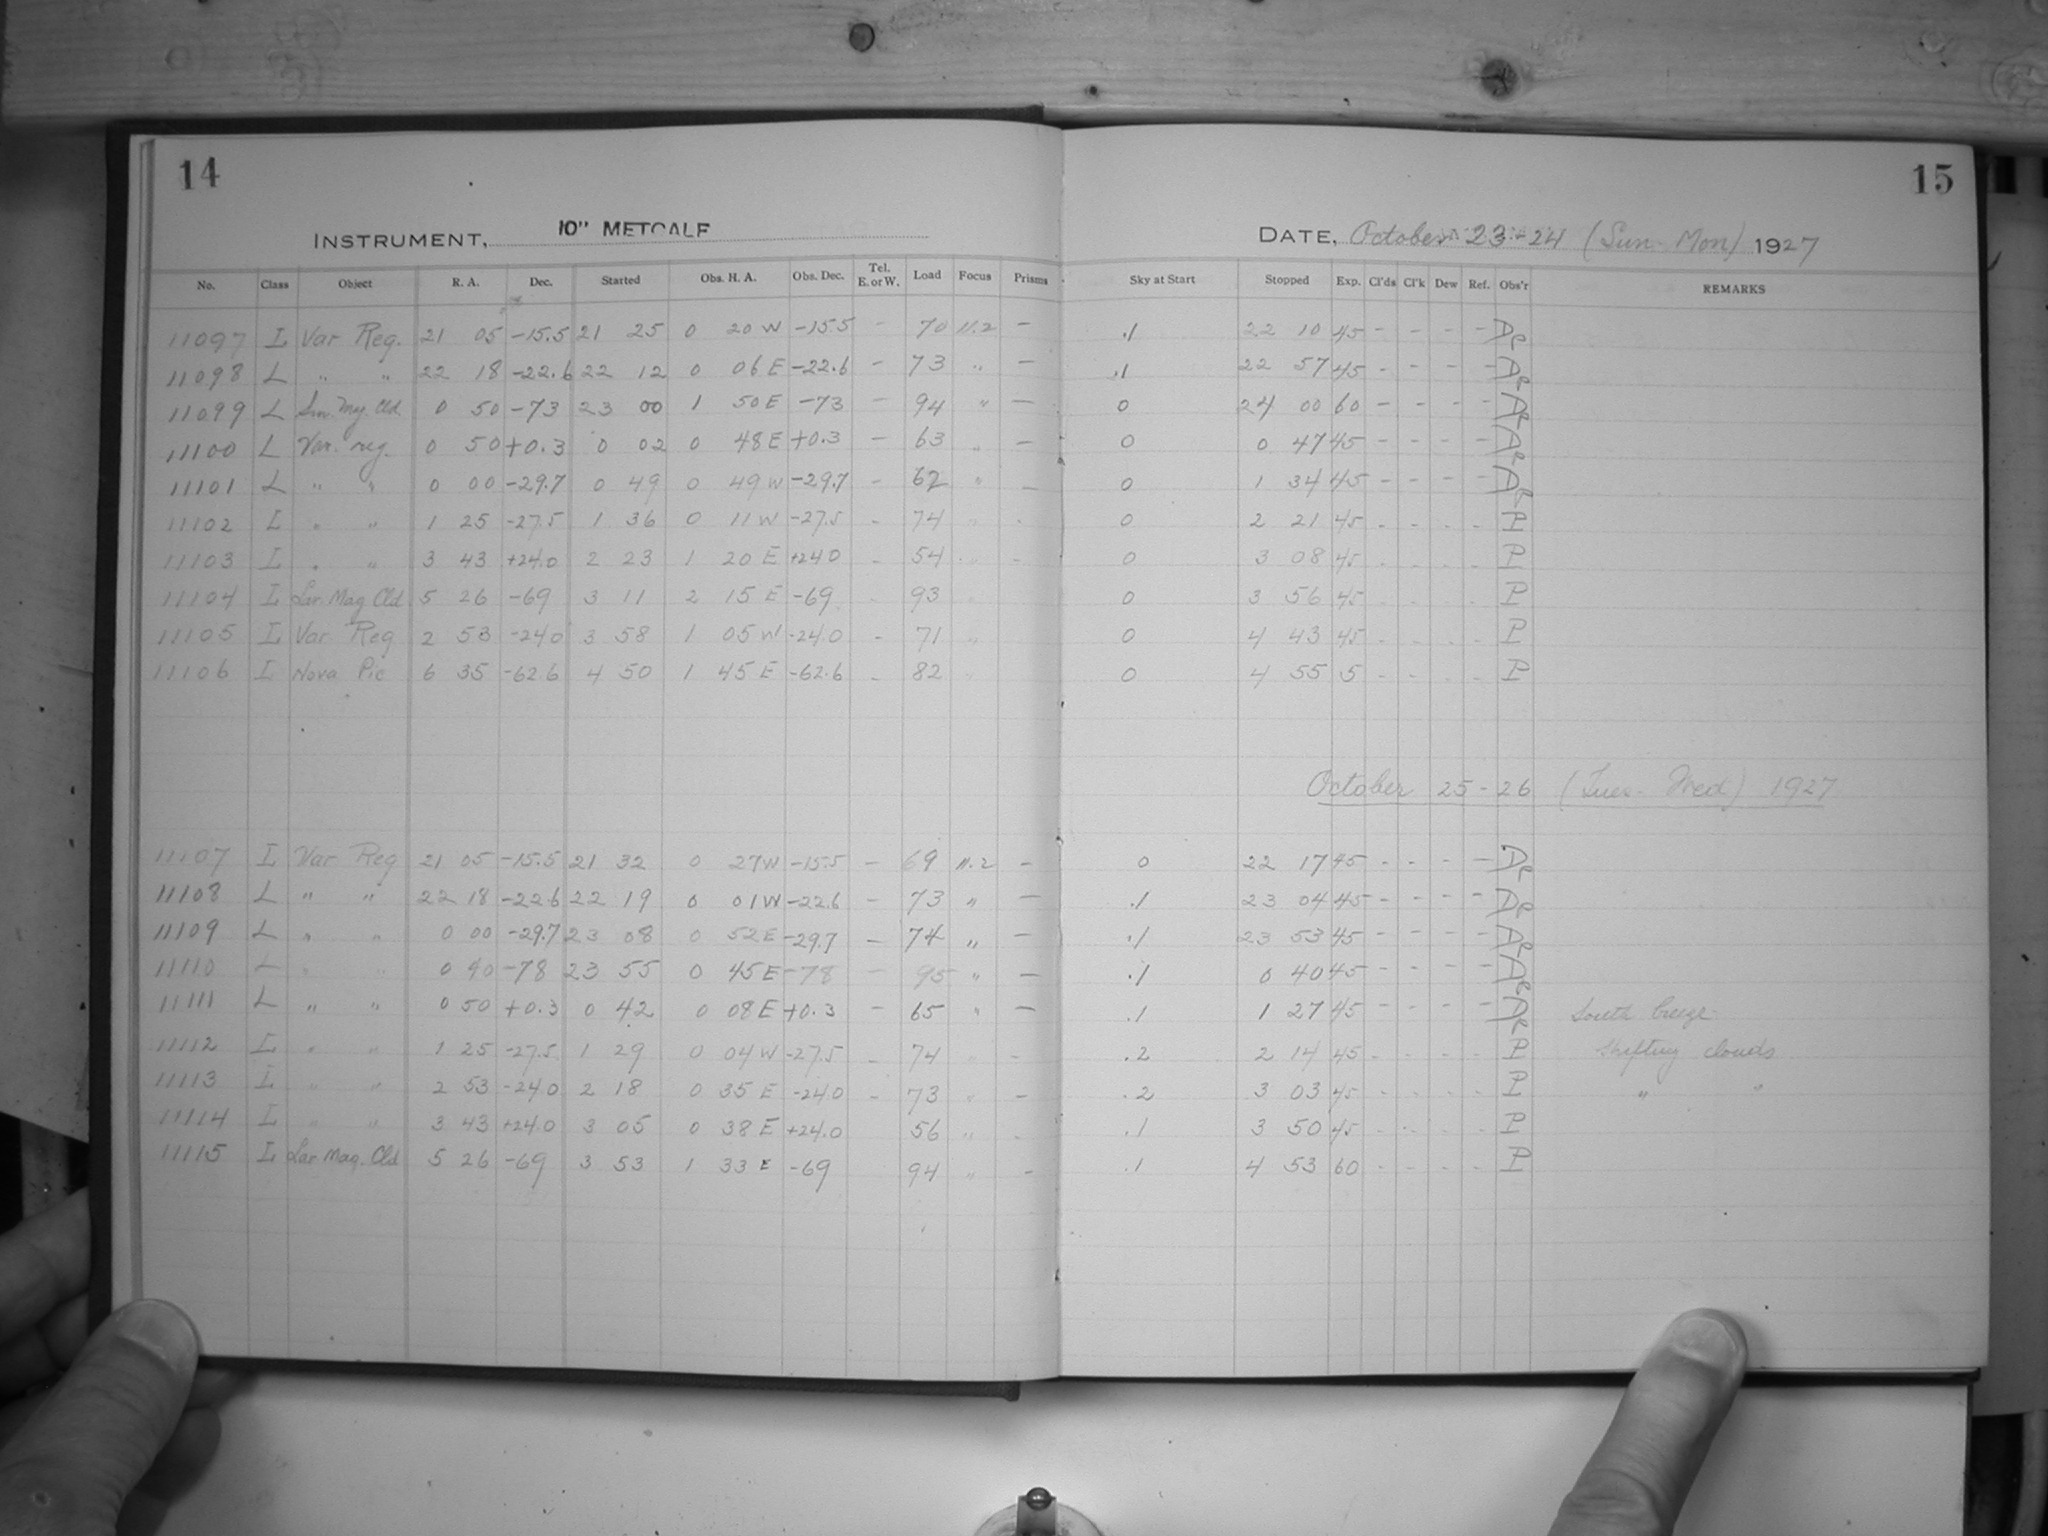 14
15
INSTRUMENT, 10" METCALF
DATE, October 23-24 (Sun-Mon) 1927
No. Class Object R. A. Dec. Started Obs. H. A. Obs. Dec. Tel. E. or W. Load Focus Prisms Sky at Start Stopped Exp. Cl'ds Cl'k Dew Ref. Obs'r REMARKS
11097 I Var Reg. 21 05 -15.5 21 25 0 20 W -15.5 - 70 11.2 - .1 22 10 45 - - - -
11098 L " " 22 18 -22.6 22 12 0 06 E -22.6 - 73 " - .1 22 57 45 - - - -
11099 L Sm. Mag Cld 0 50 -73 23 00 1 50 E -73 - 94 " - 0 24 00 60 - - - -
11100 L Var. reg. 0 50 +0.3 0 02 0 48 E +0.3 - 63 " - 0 0 47 45 - - - -
11101 L " " 0 00 -29.7 0 49 0 49 W -29.7 - 62 " - 0 1 34 45 - - - -
11102 I " " 1 25 -27.5 1 36 0 11 W -27.5 - 74 " - 0 2 21 45 - - - - P
11103 I " " 3 43 +24.0 2 23 1 20 E +24.0 - 54 " - 0 3 08 45 - - - - P
11104 I Lar Mag Cld 5 26 -69 3 11 2 15 E -69 - 93 " 0 3 56 45 - - - - P
11105 I Var Reg 2 53 -24.0 3 58 1 05 W -24.0 - 71 " 0 4 43 45 - - - - P
11106 I Nova Pic 6 35 -62.6 4 50 1 45 E -62.6 - 82 " 0 4 55 5 - - - - P
October 25-26 (Tues-Wed) 1927
11107 I Var Reg 21 05 -15.5 21 32 0 27 W -15.5 - 69 11.2 - 0 22 17 45 - - - -
11108 L " " 22 18 -22.6 22 19 0 01 W -22.6 - 73 " - .1 23 04 45 - - - -
11109 L " " 0 00 -29.7 23 08 0 52 E -29.7 - 74 " - .1 23 53 45 - - - -
11110 L " " 0 40 -78 23 55 0 45 E -78 - 95 " - .1 0 40 45 - - - -
11111 L " " 0 50 +0.3 0 42 0 08 E +0.3 - 65 " - .1 1 27 45 - - - - South breeze
11112 I " " 1 25 -27.5 1 29 0 04 W -27.5 - 74 " - .2 2 14 45 - - - - P Shifting clouds
11113 I " " 2 53 -24.0 2 18 0 35 E -24.0 - 73 " - .2 3 03 45 - - - - P " "
11114 I " " 3 43 +24.0 3 05 0 38 E +24.0 56 " - .1 3 50 45 - - - - P
11115 I Lar Mag. Cld 5 26 -69 3 53 1 33 E -69 94 " - .1 4 53 60 - - - - P